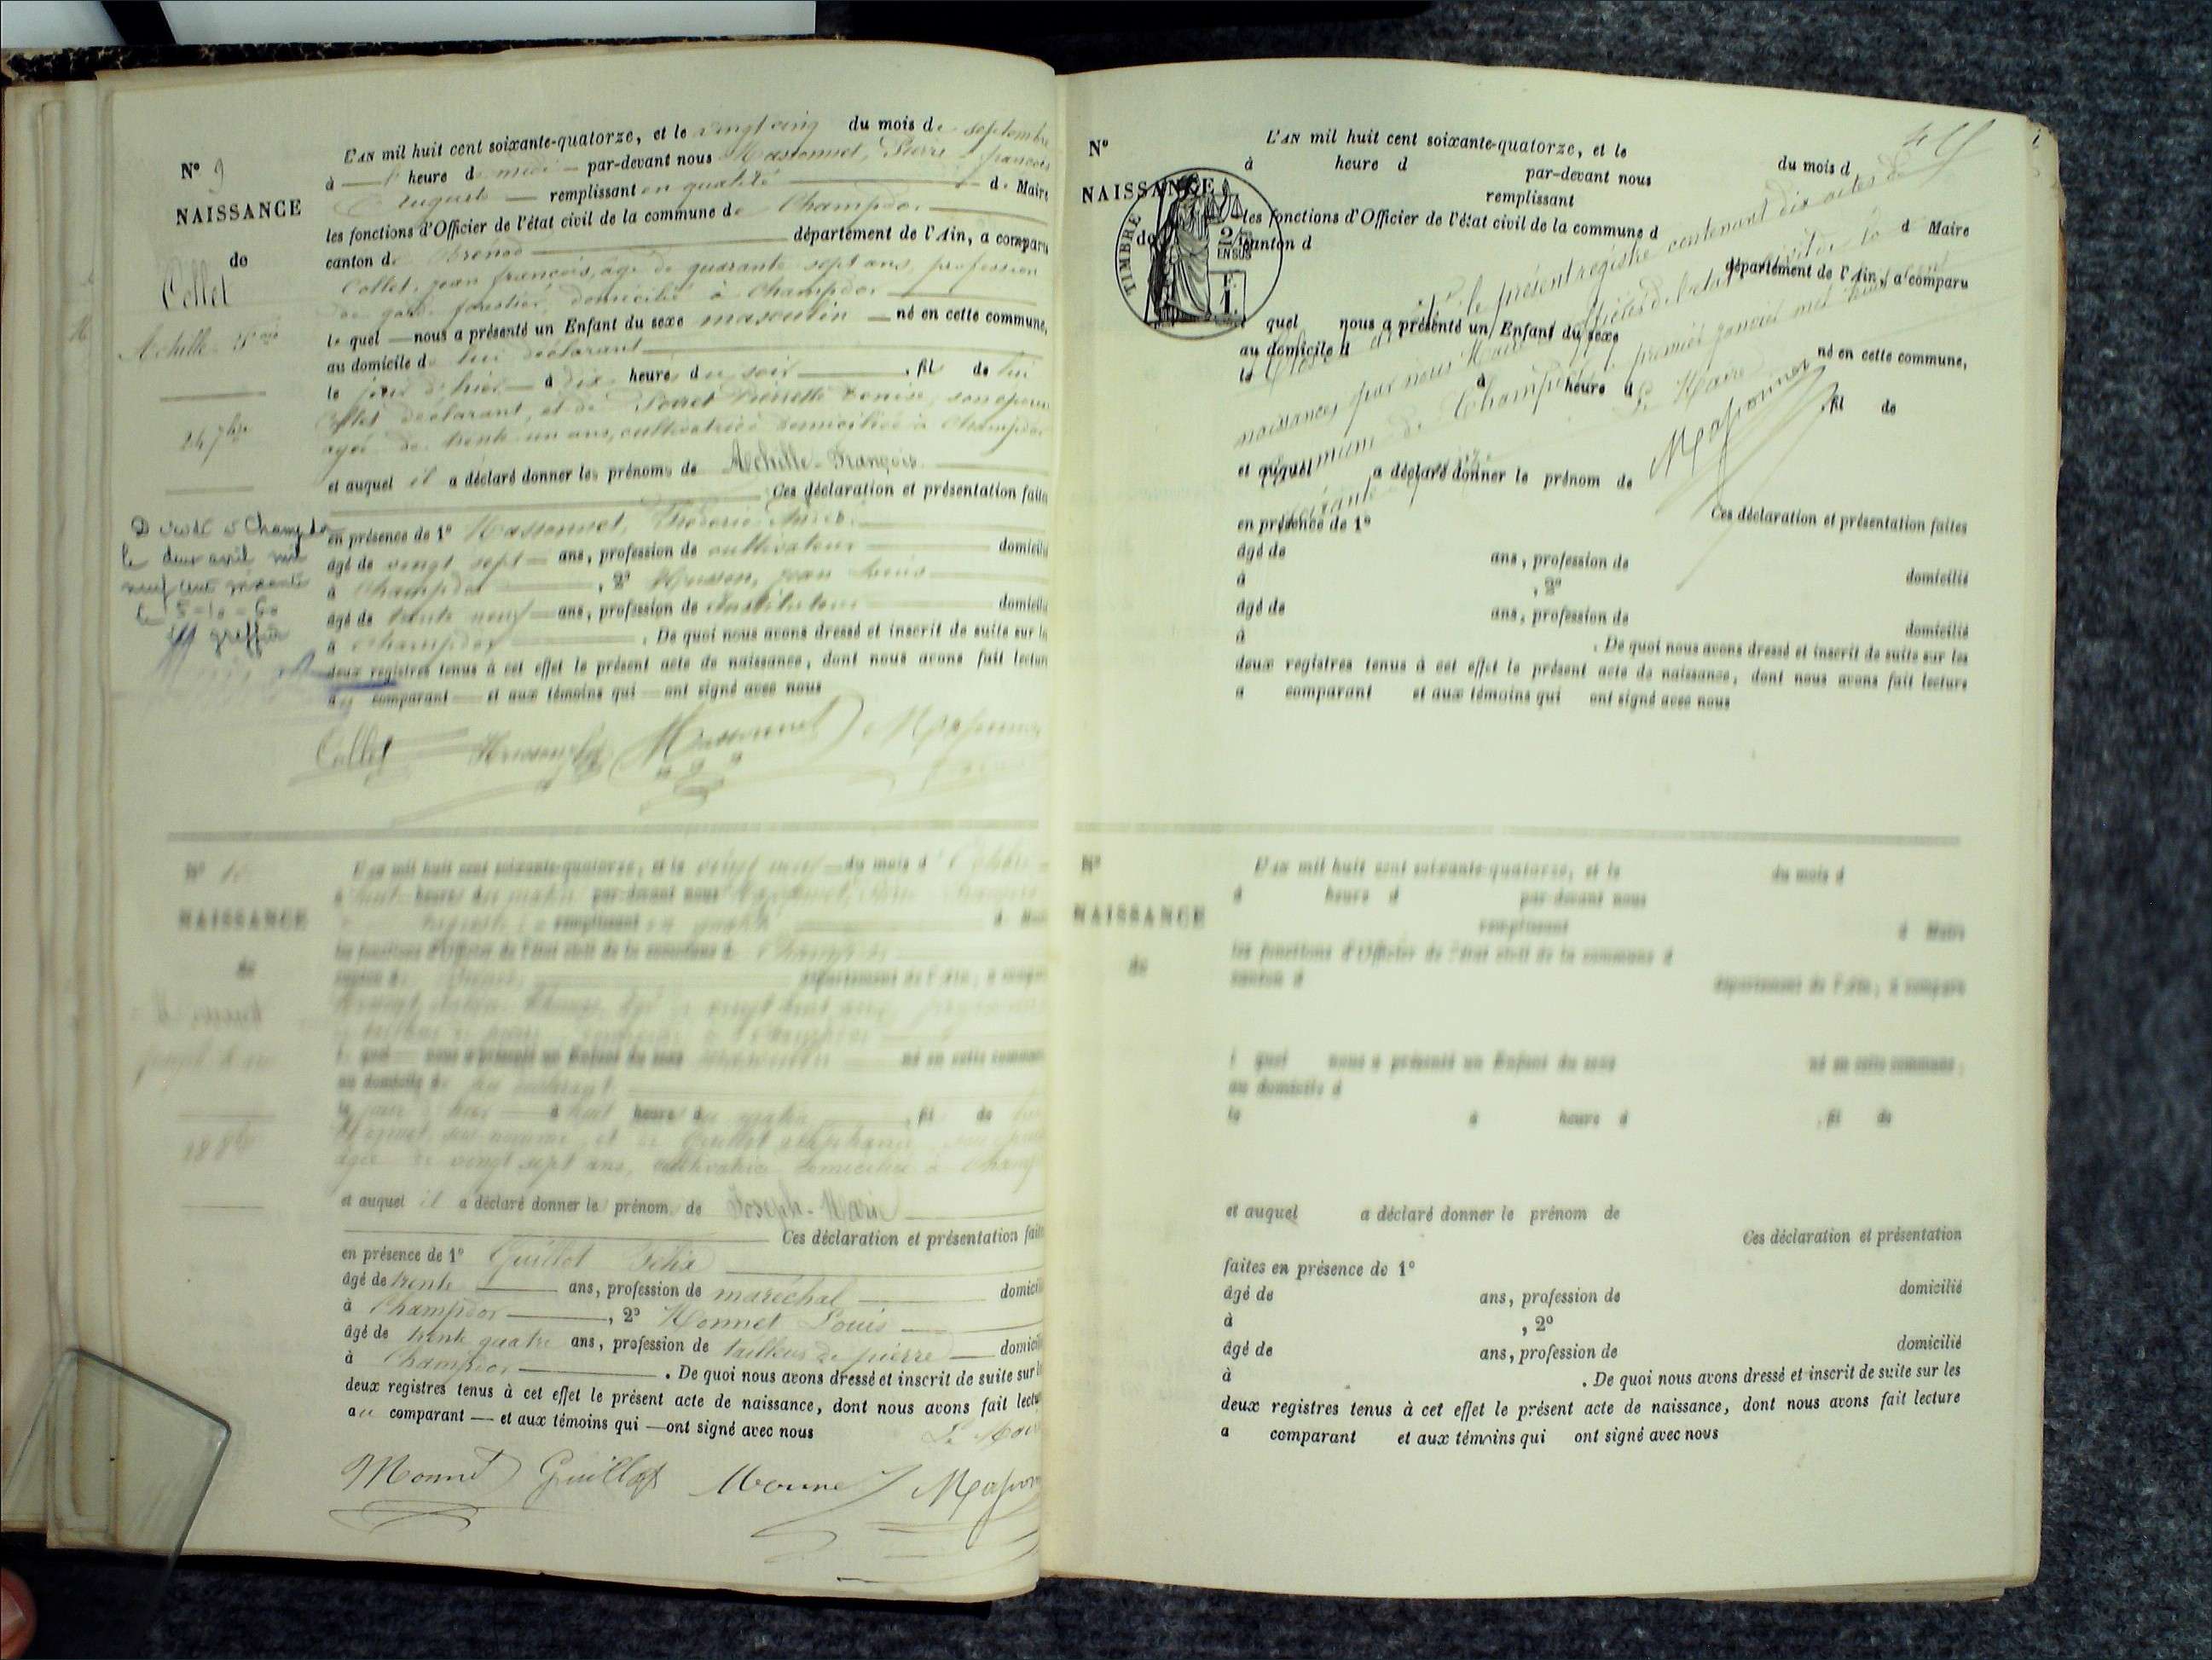 N° 9
NAISSANCE
de
Collet
Achille
24 7bre
Décédé à Champdor
le deux avril mil
neuf cent soixante
le 5-10-60
greffier
L'AN mil huit cent soixante-quatorze, et le vingt cinq du mois de septembre
à heure de midi par-devant nous Massonnet, Pierre françois
Auguste remplissant en qualité de Maire
les fonctions d'Officier de l'état civil de la commune de Champdor
canton de Brénod département de l'Ain, a comparu
Collet, jean françois, âgé de quarante sept ans, profession
de garde forestier, domicilié à Champdor
le quel nous a présenté un Enfant du sexe masculin né en cette commune,
au domicile de lui déclarant
le jour d'hier à dix heures du soir , fils de lui
Collet déclarant, et de Pierrette Denise, son épouse
agée de trente un ans, cultivatrice domiciliée à Champdor
et auquel il a déclaré donner les prénoms de Achille-François
Ces déclaration et présentation faites
en présence de 1° Massonnet, Frédéric
âgé de vingt sept ans, profession de cultivateur domicilié
à Champdor , 2° Husson, jean Louis
âgé de trente neuf ans, profession de instituteur domicilié
à Champdor . De quoi nous avons dressé et inscrit de suite sur les
deux registres tenus à cet effet le présent acte de naissance, dont nous avons fait lecture
aux comparant et aux témoins qui ont signé avec nous
Collet Husson Massonnet Massonnet
N° 10
NAISSANCE
de
L'AN mil huit cent soixante-quatorze, et le vingt neuf du mois d'Octobre
à huit heures du matin par-devant nous Massonnet, Pierre François
Auguste remplissant en qualité d Maire
les fonctions d'Officier de l'état civil de la commune de Champdor
canton de Brénod département de l'Ain, a comparu
âgé de vingt huit ans, profession
de tailleur de pierre, domicilié à Champdor
le quel nous a présenté un Enfant du sexe masculin né en cette commune
au domicile de lui déclarant
le jour d'hier à huit heures du matin , fil de lui
Monnet, susnommé, et de Guillot Stéphanie, son épouse
agée de vingt sept ans, cultivatrice domiciliée à Champdor
et auquel il a déclaré donner le prénom de Joseph-Marie
Ces déclaration et présentation faites
en présence de 1° Guillot Félix
âgé de trente ans, profession de maréchal domicilié
à Champdor , 2° Monnet Louis
âgé de trente quatre ans, profession de tailleur de pierre domicilié
à Champdor . De quoi nous avons dressé et inscrit de suite sur les
deux registres tenus à cet effet le présent acte de naissance, dont nous avons fait lecture
au comparant et aux témoins qui ont signé avec nous
Le Maire
Monnet Guillot Monnet Massonnet
N°
NAISSANCE
de
TIMBRE
2/10
EN SUS
F.
1.
L'AN mil huit cent soixante-quatorze, et le du mois d
à heure d par-devant nous
remplissant d Maire
les fonctions d'Officier de l'état civil de la commune d
canton d département de l'Ain, a comparu
quel nous a présenté un Enfant du sexe né en cette commune,
au domicile d
le à heure d , fil de
Clos et le présent registre contenant dix actes de
naissances par nous Maire officier de l'état civil de la
commune de Champdor le premier janvier mil huit cent
soixante quinze.
Le Maire
Massonnet
et auquel a déclaré donner le prénom de
Ces déclaration et présentation faites
en présence de 1°
âgé de ans, profession de domicilié
à , 2°
âgé de ans, profession de domicilié
à . De quoi nous avons dressé et inscrit de suite sur les
deux registres tenus à cet effet le présent acte de naissance, dont nous avons fait lecture
a comparant et aux témoins qui ont signé avec nous
N°
NAISSANCE
de
L'AN mil huit cent soixante-quatorze, et le du mois d
à heure d par-devant nous
remplissant d Maire
les fonctions d'Officier de l'état civil de la commune d
canton d département de l'Ain, a comparu
l quel nous a présenté un Enfant du sexe né en cette commune,
au domicile d
le à heure d , fil de
et auquel a déclaré donner le prénom de
Ces déclaration et présentation
faites en présence de 1°
âgé de ans, profession de domicilié
à , 2°
âgé de ans, profession de domicilié
à . De quoi nous avons dressé et inscrit de suite sur les
deux registres tenus à cet effet le présent acte de naissance, dont nous avons fait lecture
a comparant et aux témoins qui ont signé avec nous